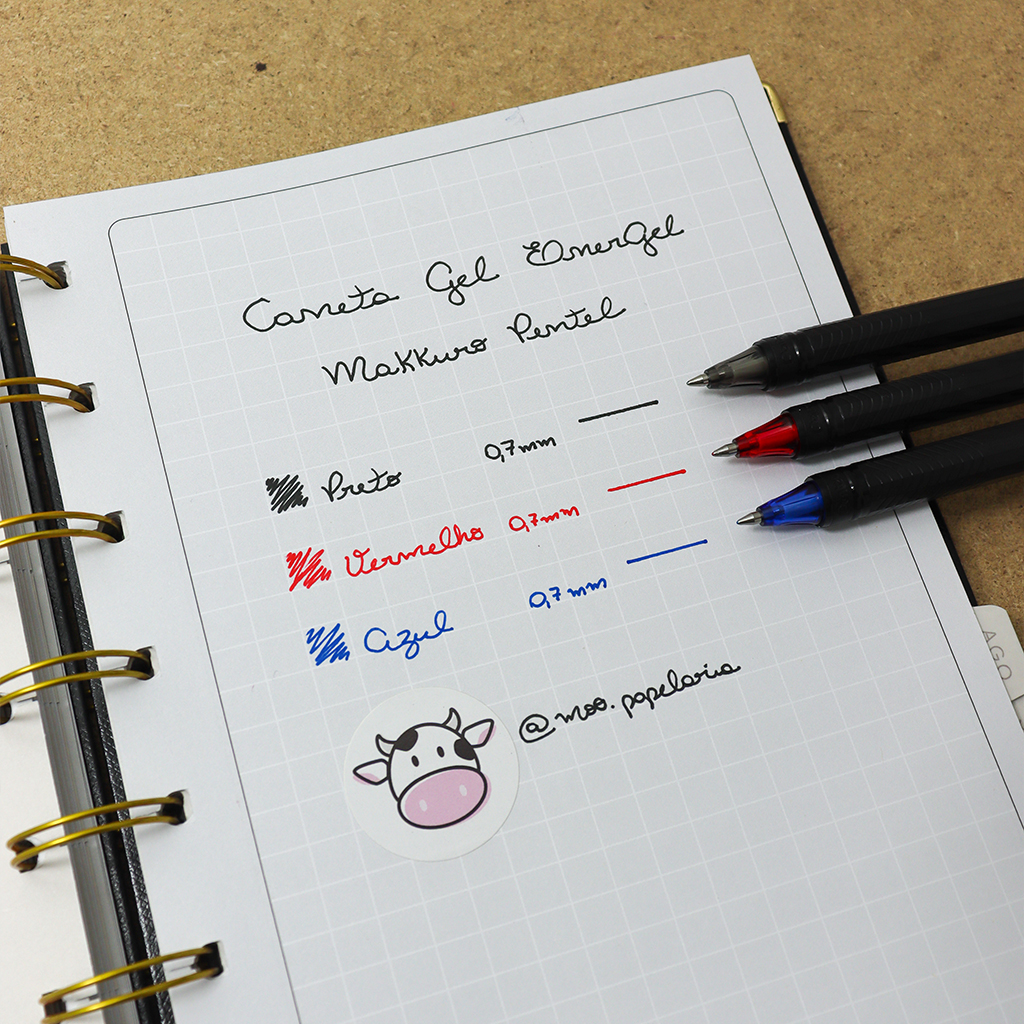 Caneta Gel EnerGel
Makkuro Pentel
Preto 0,7mm
Vermelho 0,7mm
Azul 0,7mm
@moo.papelaria
AGO